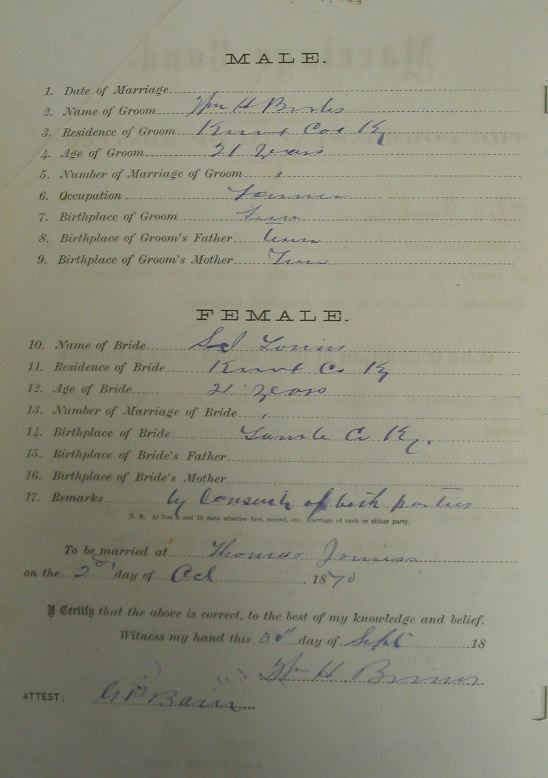 MALE.
1. Date of Marriage
2. Name of Groom Wm H
3. Residence of Groom Knox Co Ky
4. Age of Groom 21 years
5. Number of Marriage of Groom 1
6. Occupation Farmer
7. Birthplace of Groom Tenn
8. Birthplace of Groom's Father Tenn
9. Birthplace of Groom's Mother Tenn
FEMALE.
10. Name of Bride
11. Residence of Bride Knox Co Ky
12. Age of Bride 21 years
13. Number of Marriage of Bride 1
14. Birthplace of Bride Co Ky.
15. Birthplace of Bride's Father
16. Birthplace of Bride's Mother
17. Remarks by consent of both parties
N. B. At Nos. 5 and 13 state whether first, second, etc., Marriage of each or either party.
To be married at Thomas
on the 2d day of Oct 1870
I Certify that the above is correct, to the best of my knowledge and belief.
Witness my hand this 30th day of Sept 18
Wm H
ATTEST,